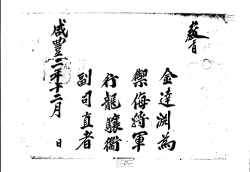 敎旨
金達淵爲
禦侮將軍
行龍驤衛
副司直者
咸豐二年十二月 日